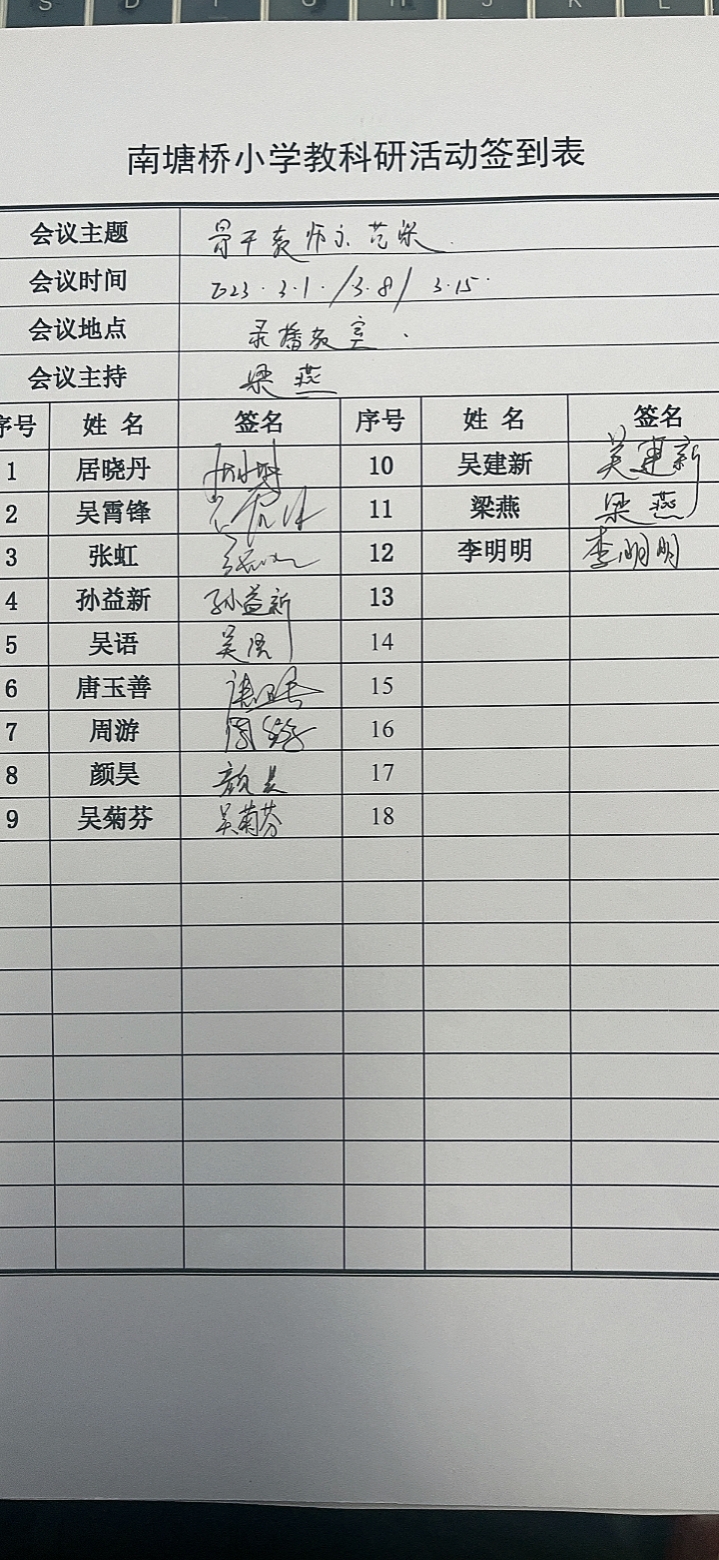 南塘桥小学教科研活动签到表
会议主题 骨干教师示范课
会议时间 2023.3.1./3.8/ 3.15
会议地点 录播教室.
会议主持 梁燕
序号 姓名 签名 序号 姓名 签名
1 居晓丹 10 吴建新 吴建新
2 吴霄锋 11 梁燕 梁燕
3 张虹 12 李明明 李明明
4 孙益新 孙益新 13
5 吴语 吴语 14
6 唐玉善 15
7 周游 周游 16
8 颜昊 颜昊 17
9 吴菊芬 吴菊芬 18